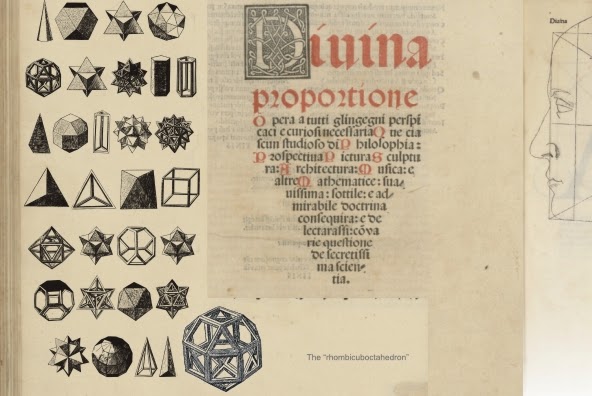 Diuina
proportione
O pera a tutti glingegni perspi
caci e curiosi necessaria Q ue cia
scun studioso di P hilosophia:
P rospectiua P ictura S culptu
ra: A rchitectura: M usica: e
altre M athematice: sua/
uissima: sottile: e ad/
mirabile doctrina
consequira: e de
lectarassi: cõ va
rie questione
de secretissi
ma scien/
tia.
The "rhombicuboctahedron"
Diuina